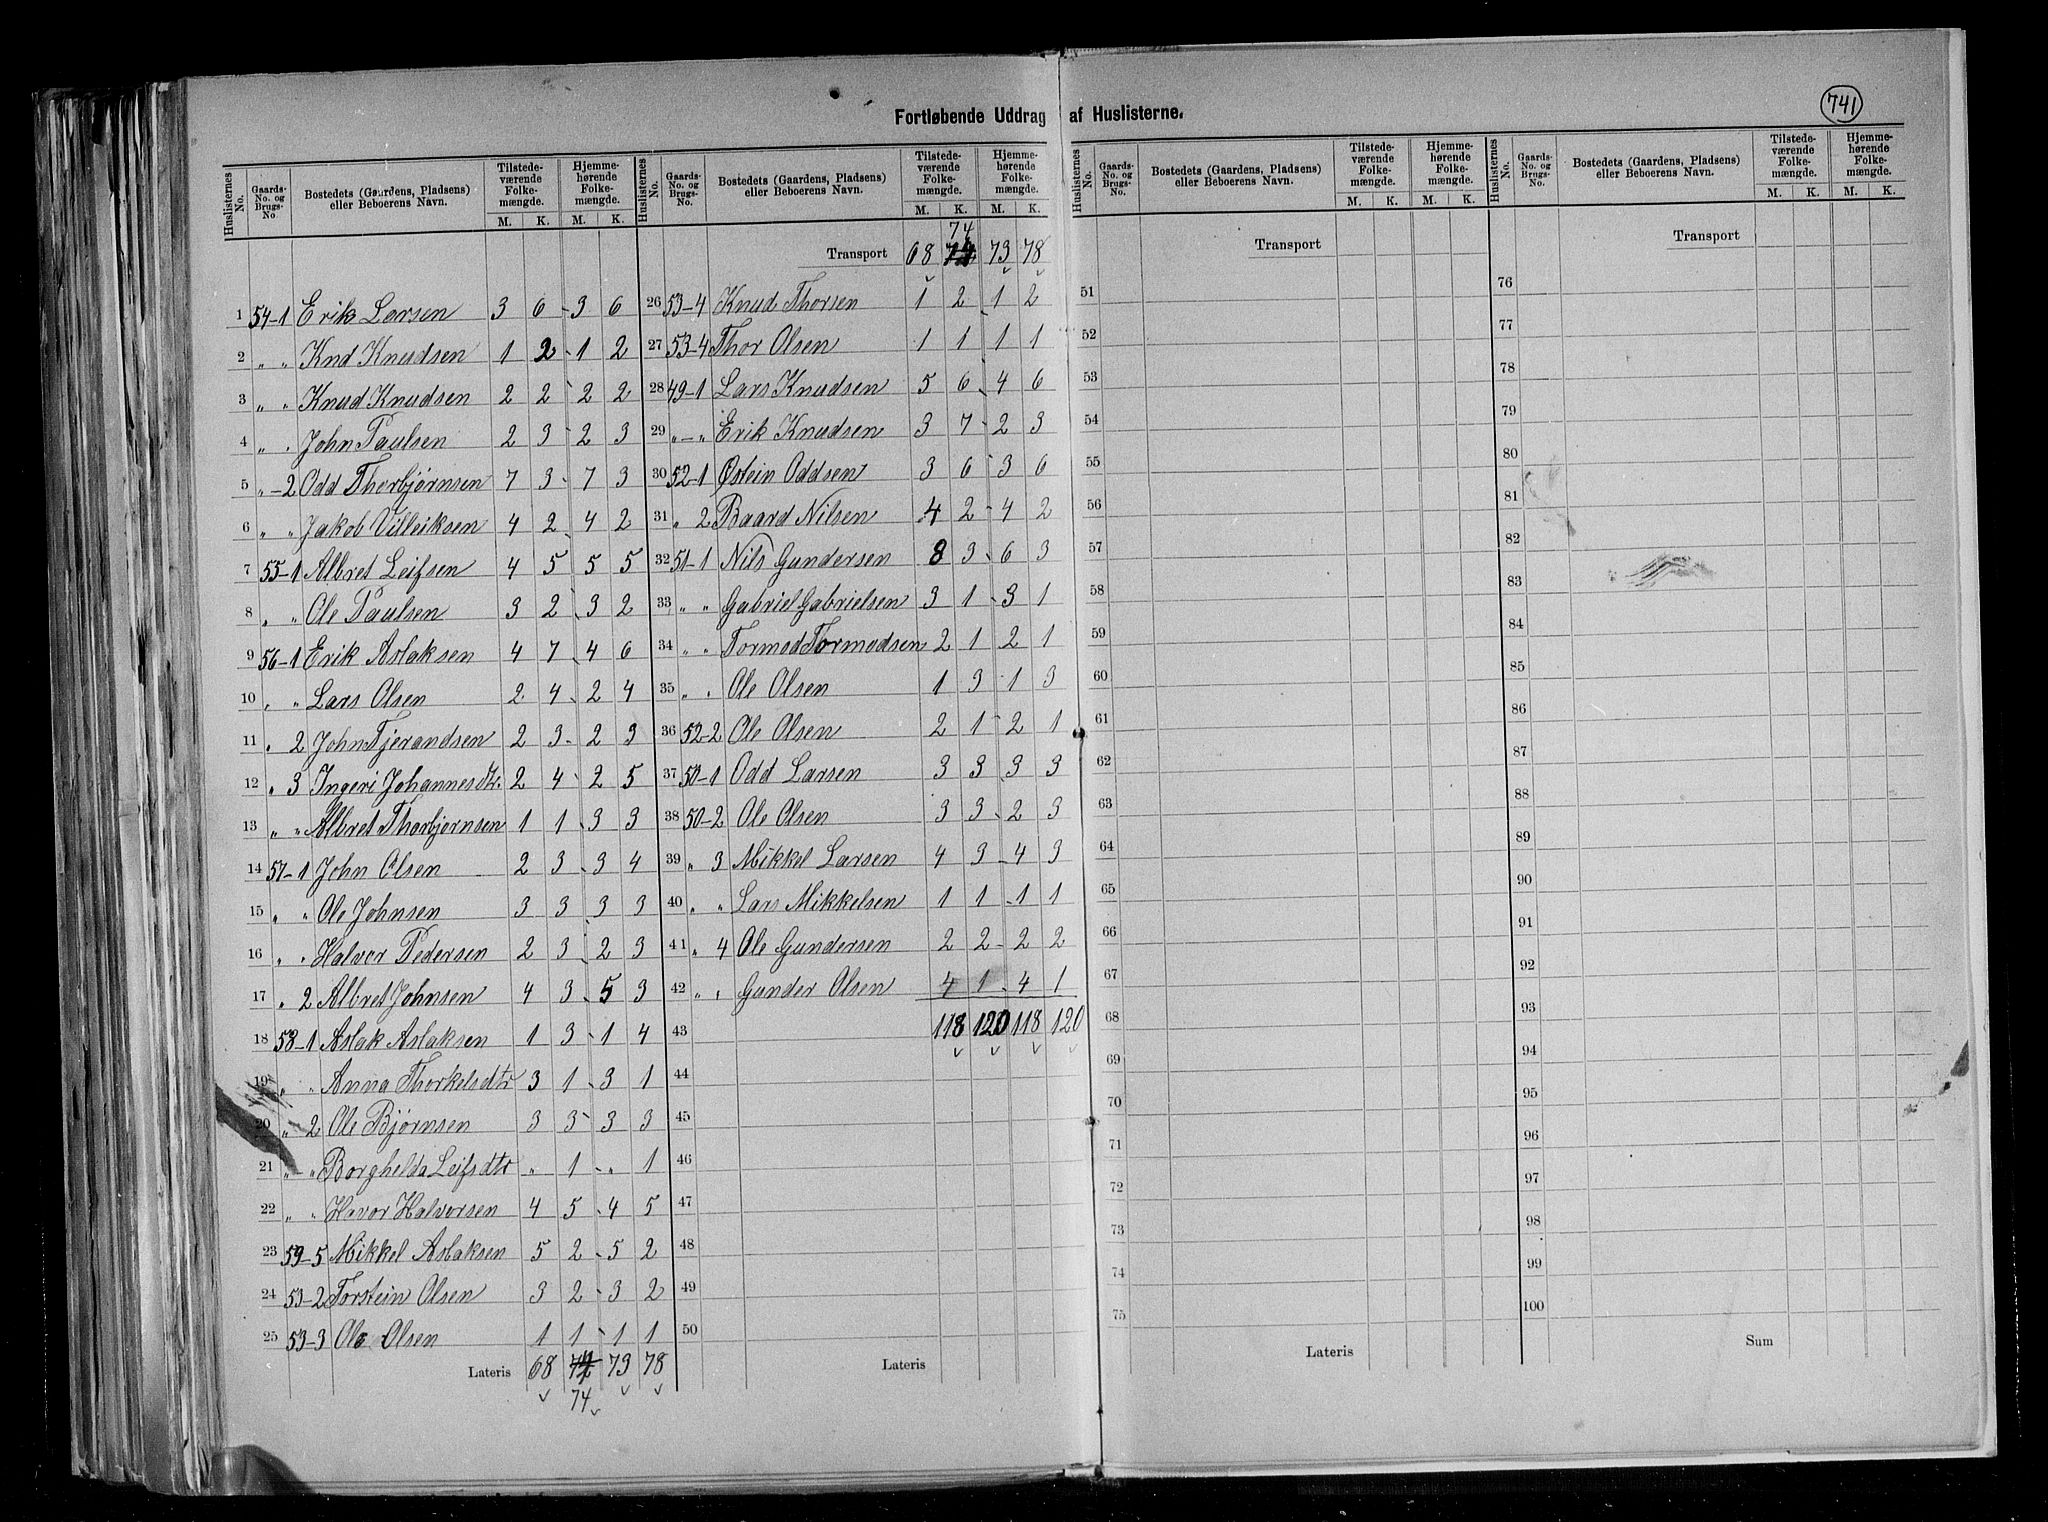 741
Fortløbende Uddrag af Huslisterne.
Huslisternes No. Gaards-No. og Brugs-No. Bostedets (Gaardens, Pladsens) eller Beboerens Navn. Tilstedeværende Folkemængde. M. K. Hjemmehørende Folkemængde. M. K.
1 54-1 Erik Larsen 3 6 3 6
2 „ „ Knd Knudsen 1 2 1 2
3 „ „ Knud Knudsen 2 2 2 2
4 „ „ John Paulsen 2 3 2 3
5 „-2 Odd Thorbjørnsen 7 3 7 3
6 „ „ Jakob Villeiksen 4 2 4 2
7 55-1 Albret Leifsen 4 5 5 5
8 „ „ Ole Paulsen 3 2 3 2
9 56-1 Erik Aslaksen 4 7 4 6
10 „ „ Lars Olsen 2 4 2 4
11 „ 2 John Tjerandsen 2 3 2 3
12 „ 3 Ingeri Johannesdtr. 2 4 2 5
13 „ „ Albret Thorbjørnsen 1 1 3 3
14 57-1 John Olsen 2 3 3 4
15 „ „ Ole Johnsen 3 3 3 3
16 „ „ Halvor Pedersen 2 3 2 3
17 „ 2 Albret Johnsen 4 3 5 3
18 58-1 Aslak Aslaksen 1 3 1 4
19 „ „ Anna Thorkelsdtr 3 1 3 1
20 „ 2 Ole Bjørnsen 3 3 3 3
21 „-„ Borghelda Leifsdtr „ 1 „ 1
22 „ „ Havor Halvorsen 4 5 4 5
23 59-5 Mikkel Aslaksen 5 2 5 2
24 53-2 Torstein Olsen 3 2 3 2
25 53-3 Ole Olsen 1 1 1 1
Lateris 68 73 78
74
Huslisternes No. Gaards-No. og Brugs-No. Bostedets (Gaardens, Pladsens) eller Beboerens Navn. Tilstedeværende Folkemængde. M. K. Hjemmehørende Folkemængde. M. K.
74
Transport 68 73 78
26 53-4 Knud Thorsen 1 2 1 2
27 53-4 Thor Olsen 1 1 1 1
28 49-1 Lars Knudsen 5 6 4 6
29 „-„ Erik Knudsen 3 7 2 3
30 52-1 Østein Oddsen 3 6 3 6
31 „ 2 Baard Nilsen 4 2 4 2
32 51-1 Nils Gundersen 8 3 6 3
33 „ „ Gabriel Gabrielsen 3 1 3 1
34 „ „ Tormod Tormodsen 2 1 2 1
35 „ „ Ole Olsen 1 3 1 3
36 52-2 Ole Olsen 2 1 2 1
37 50-1 Odd Larsen 3 3 3 3
38 50-2 Ole Olsen 3 3 2 3
39 „ 3 Mikkel Larsen 4 3 4 3
40 „ „ Lars Mikkelsen 1 1 1 1
41 „ 4 Ole Gundersen 2 2 2 2
42 „ „ Gunder Olsen 4 1 4 1
43 118 120 118 120
44
45
46
47
48
49
50
Lateris
Huslisternes No. Gaards-No. og Brugs-No. Bostedets (Gaardens, Pladsens) eller Beboerens Navn. Tilstedeværende Folkemængde. M. K. Hjemmehørende Folkemængde. M. K.
Transport
51
52
53
54
55
56
57
58
59
60
61
62
63
64
65
66
67
68
69
70
71
72
73
74
75
Lateris
Huslisternes No. Gaards-No. og Brugs-No. Bostedets (Gaardens, Pladsens) eller Beboerens Navn. Tilstedeværende Folkemængde. M. K. Hjemmehørende Folkemængde. M. K.
Transport
76
77
78
79
80
81
82
83
84
85
86
87
88
89
90
91
92
93
94
95
96
97
98
99
100
Sum